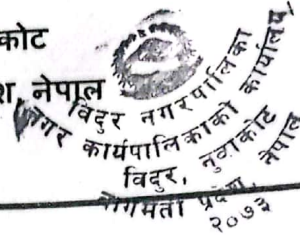 कोट
श, नेपाल
विदुर नगरपालिका
नगर कार्यपालिकाको कार्यालय
विदुर, नुवाकोट
बागमती प्रदेश, नेपाल
२०७३